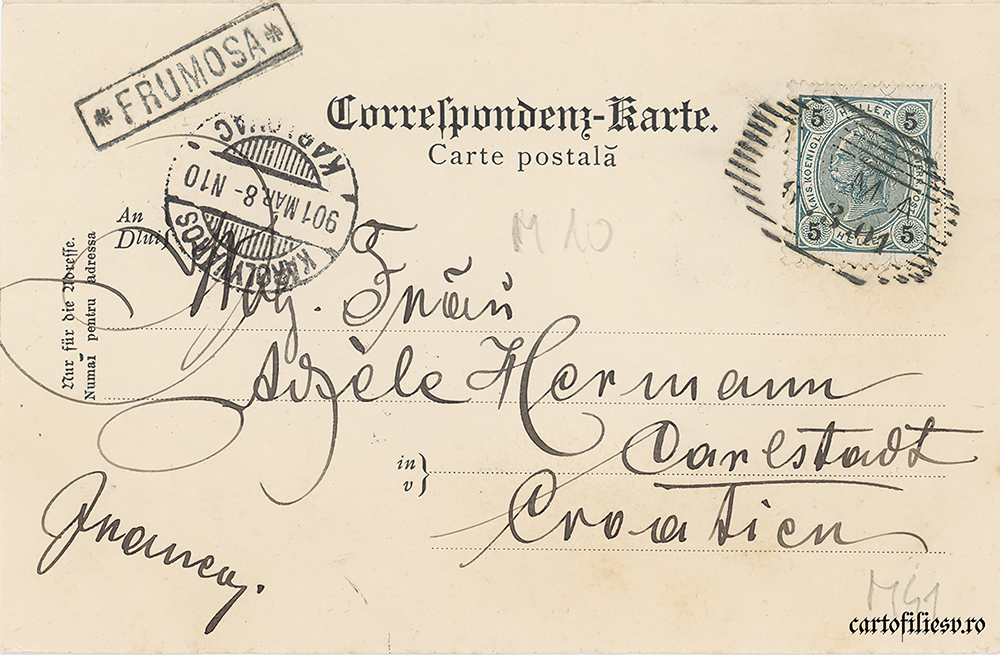 *FRUMOSA*
Correspondenz-Karte.
Carte postală
KARLOVAC
901 MAR. 8 - N10
KÁROLYVÁROS
5 HELLER 5
KAIS. KOENIGL.
5 HELLER 5
An
Dlui
Nur für die Adresse.
Numai pentru adressa
M 10
Frau
Adèle Hermann
in
v
Carlstadt
Croatien
M41
cartofiliesv.ro